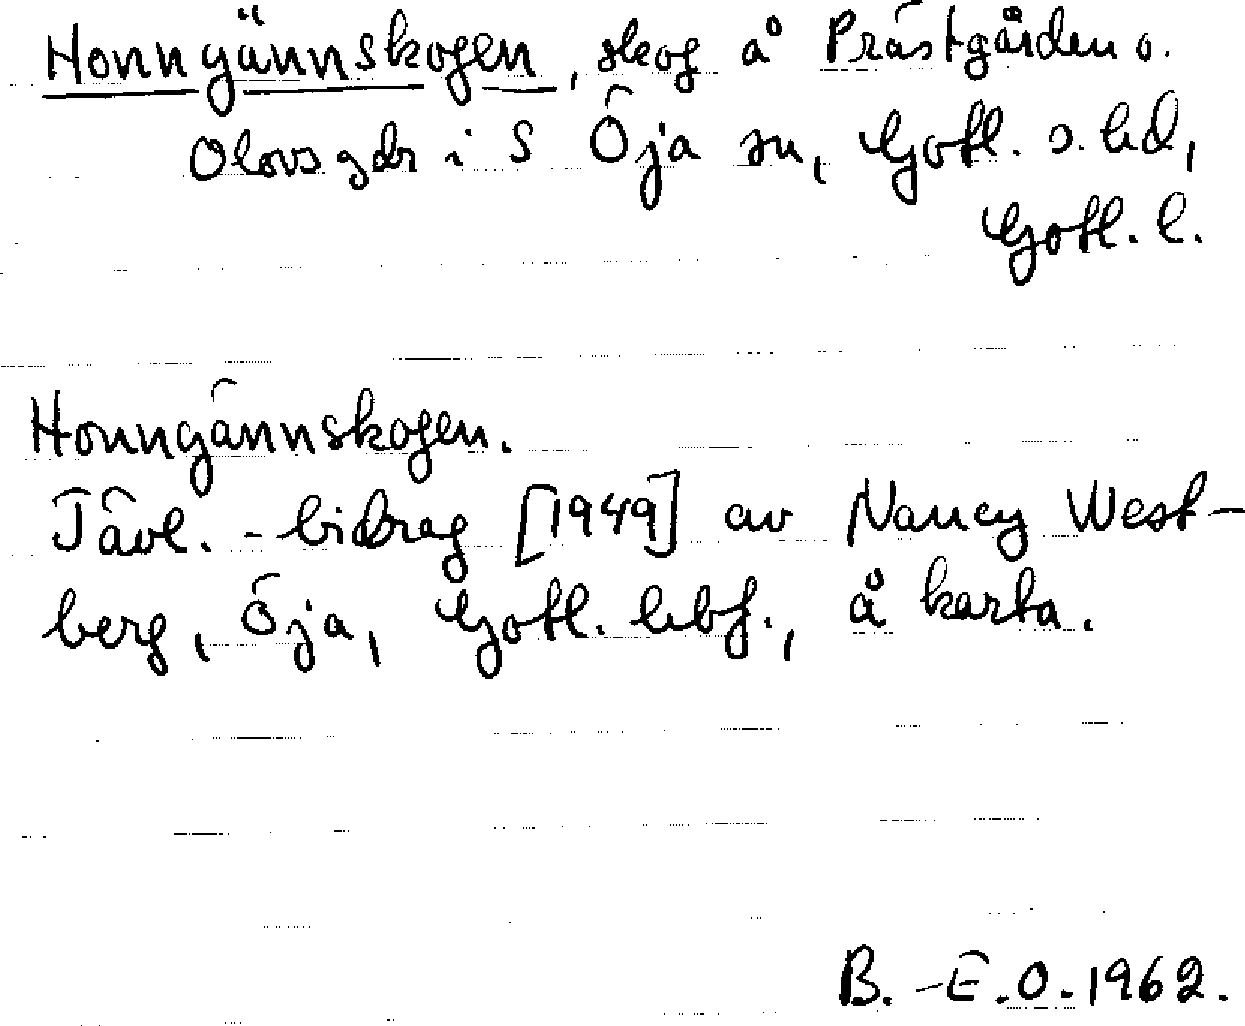 Honngännskogen, skog å Prästgården o.
Olovs gdr i S Öja sn, Gotl. s. hd,
Gotl. l.
Honngännskogen.
Tävl.-bidrag [1949] av Nancy West-
berg, Öja, Gotl. hbf., å karta.
B.-E.O. 1962.